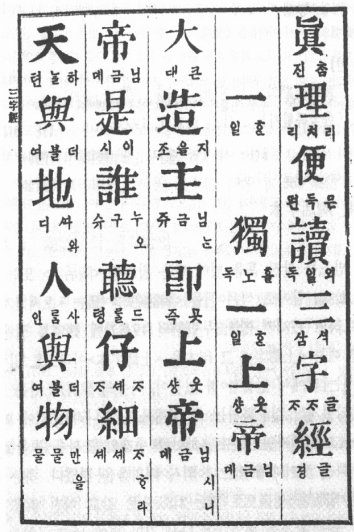 眞理便讀三字經
참 진 리치 리 믄득 편 외일 독 셕 삼 글ᄌᆞ ᄌᆞ 글 경
一 獨一上帝
ᄒᆞᆫ 일 홀노 독 ᄒᆞᆫ 일 웃 샹 뎨
大造主 卽上帝
큰 대 지을 조 님금 쥬 는 곳 즉 웃 샹 님금 뎨 시니
帝是誰 聽仔細
님금 뎨 이 시 누구 슈 오 드ᄅᆞᆯ 텽 ᄌᆞ셰 ᄌᆞ ᄌᆞ셰 셰 ᄒᆞ라
天與地 人與物
하ᄂᆞᆯ 텬 더불 여 ᄯᅡ 디 와 사ᄅᆞᆷ 인 더불 여 만물 물 을
三字經